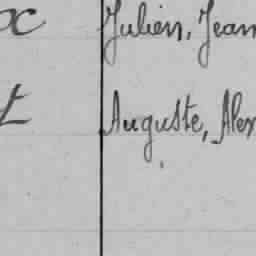 x Julien, Jean
t Auguste, Alex